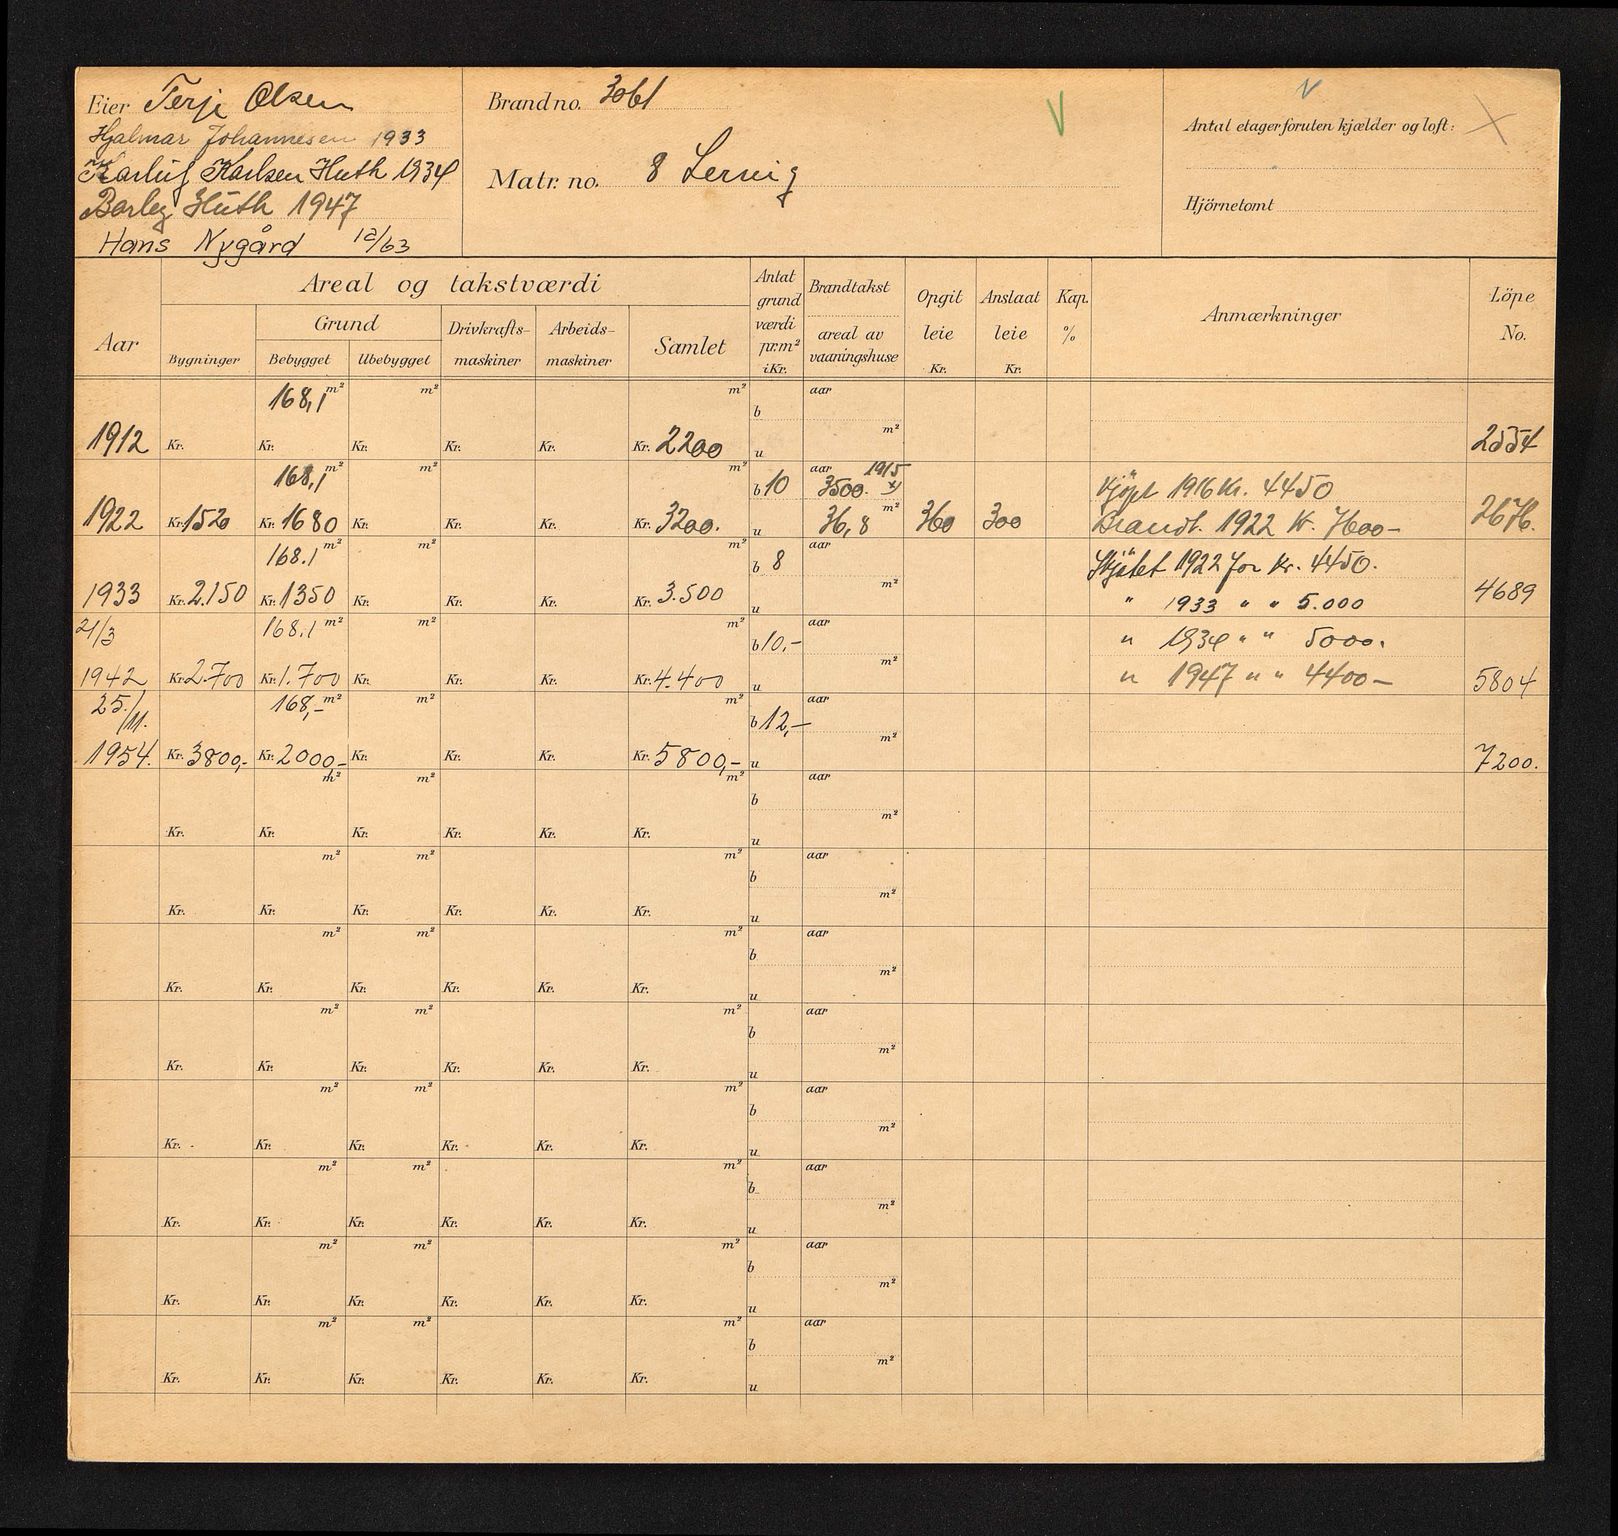 Eier Terje Olsen
Hjalmar Johannesen 1933
Karluf Karlsen Huth 1934
Borley Huth 1947
Hans Nygård 12/63
Brand no. 3061
Matr. no. 8 Lervig
V
V
Antal etager foruten kjælder og loft: X
Hjörnetomt
Areal og takstværdi
Aar
Bygninger
Grund
Bebygget Ubebygget
Drivkrafts-maskiner
Arbeids-maskiner
Samlet
Antat grund værdi pr. m² i Kr.
Brandtakst
areal av vaaningshuse
Opgit leie Kr.
Anslaat leie Kr.
Kap. %
Anmærkninger
Löpe No.
168,1 m² m² m² b aar
1912 Kr. Kr. Kr. Kr. Kr. Kr. 2200 u m² 2554
168,1 m² m² m² b 10 aar 1915 3500. x) Kjöpt 1916 Kr. 4450
1922 Kr. 1520 Kr. 1680 Kr. Kr. Kr. Kr. 3200. u 36,8 m² 360 300 Brandt. 1922 Kr. 7600- 2676.
168.1 m² m² m² b 8 aar Skjötet 1922 for Kr. 4450.
1933 Kr. 2.150 Kr. 1350 Kr. Kr. Kr. Kr. 3.500 u m² " 1933 " " 5.000 4689
21/3 168.1 m² m² m² b 10,- aar " 1934 " " 5000.
1942 Kr. 2.700 Kr. 1.700 Kr. Kr. Kr. Kr. 4.400 u m² " 1947 " " 4400- 5804
25./11. 168,- m² m² m² b 12,- aar
1954. Kr. 3800,- Kr. 2000- Kr. Kr. Kr. Kr. 5800,- u m² 7200.
m² m² m² b aar
Kr. Kr. Kr. Kr. Kr. Kr. u m²
m² m² m² b aar
Kr. Kr. Kr. Kr. Kr. Kr. u m²
m² m² m² b aar
Kr. Kr. Kr. Kr. Kr. Kr. u m²
m² m² m² b aar
Kr. Kr. Kr. Kr. Kr. Kr. u m²
m² m² m² b aar
Kr. Kr. Kr. Kr. Kr. Kr. u m²
m² m² m² b aar
Kr. Kr. Kr. Kr. Kr. Kr. u m²
m² m² m² b aar
Kr. Kr. Kr. Kr. Kr. Kr. u m²
m² m² m² b aar
Kr. Kr. Kr. Kr. Kr. Kr. u m²